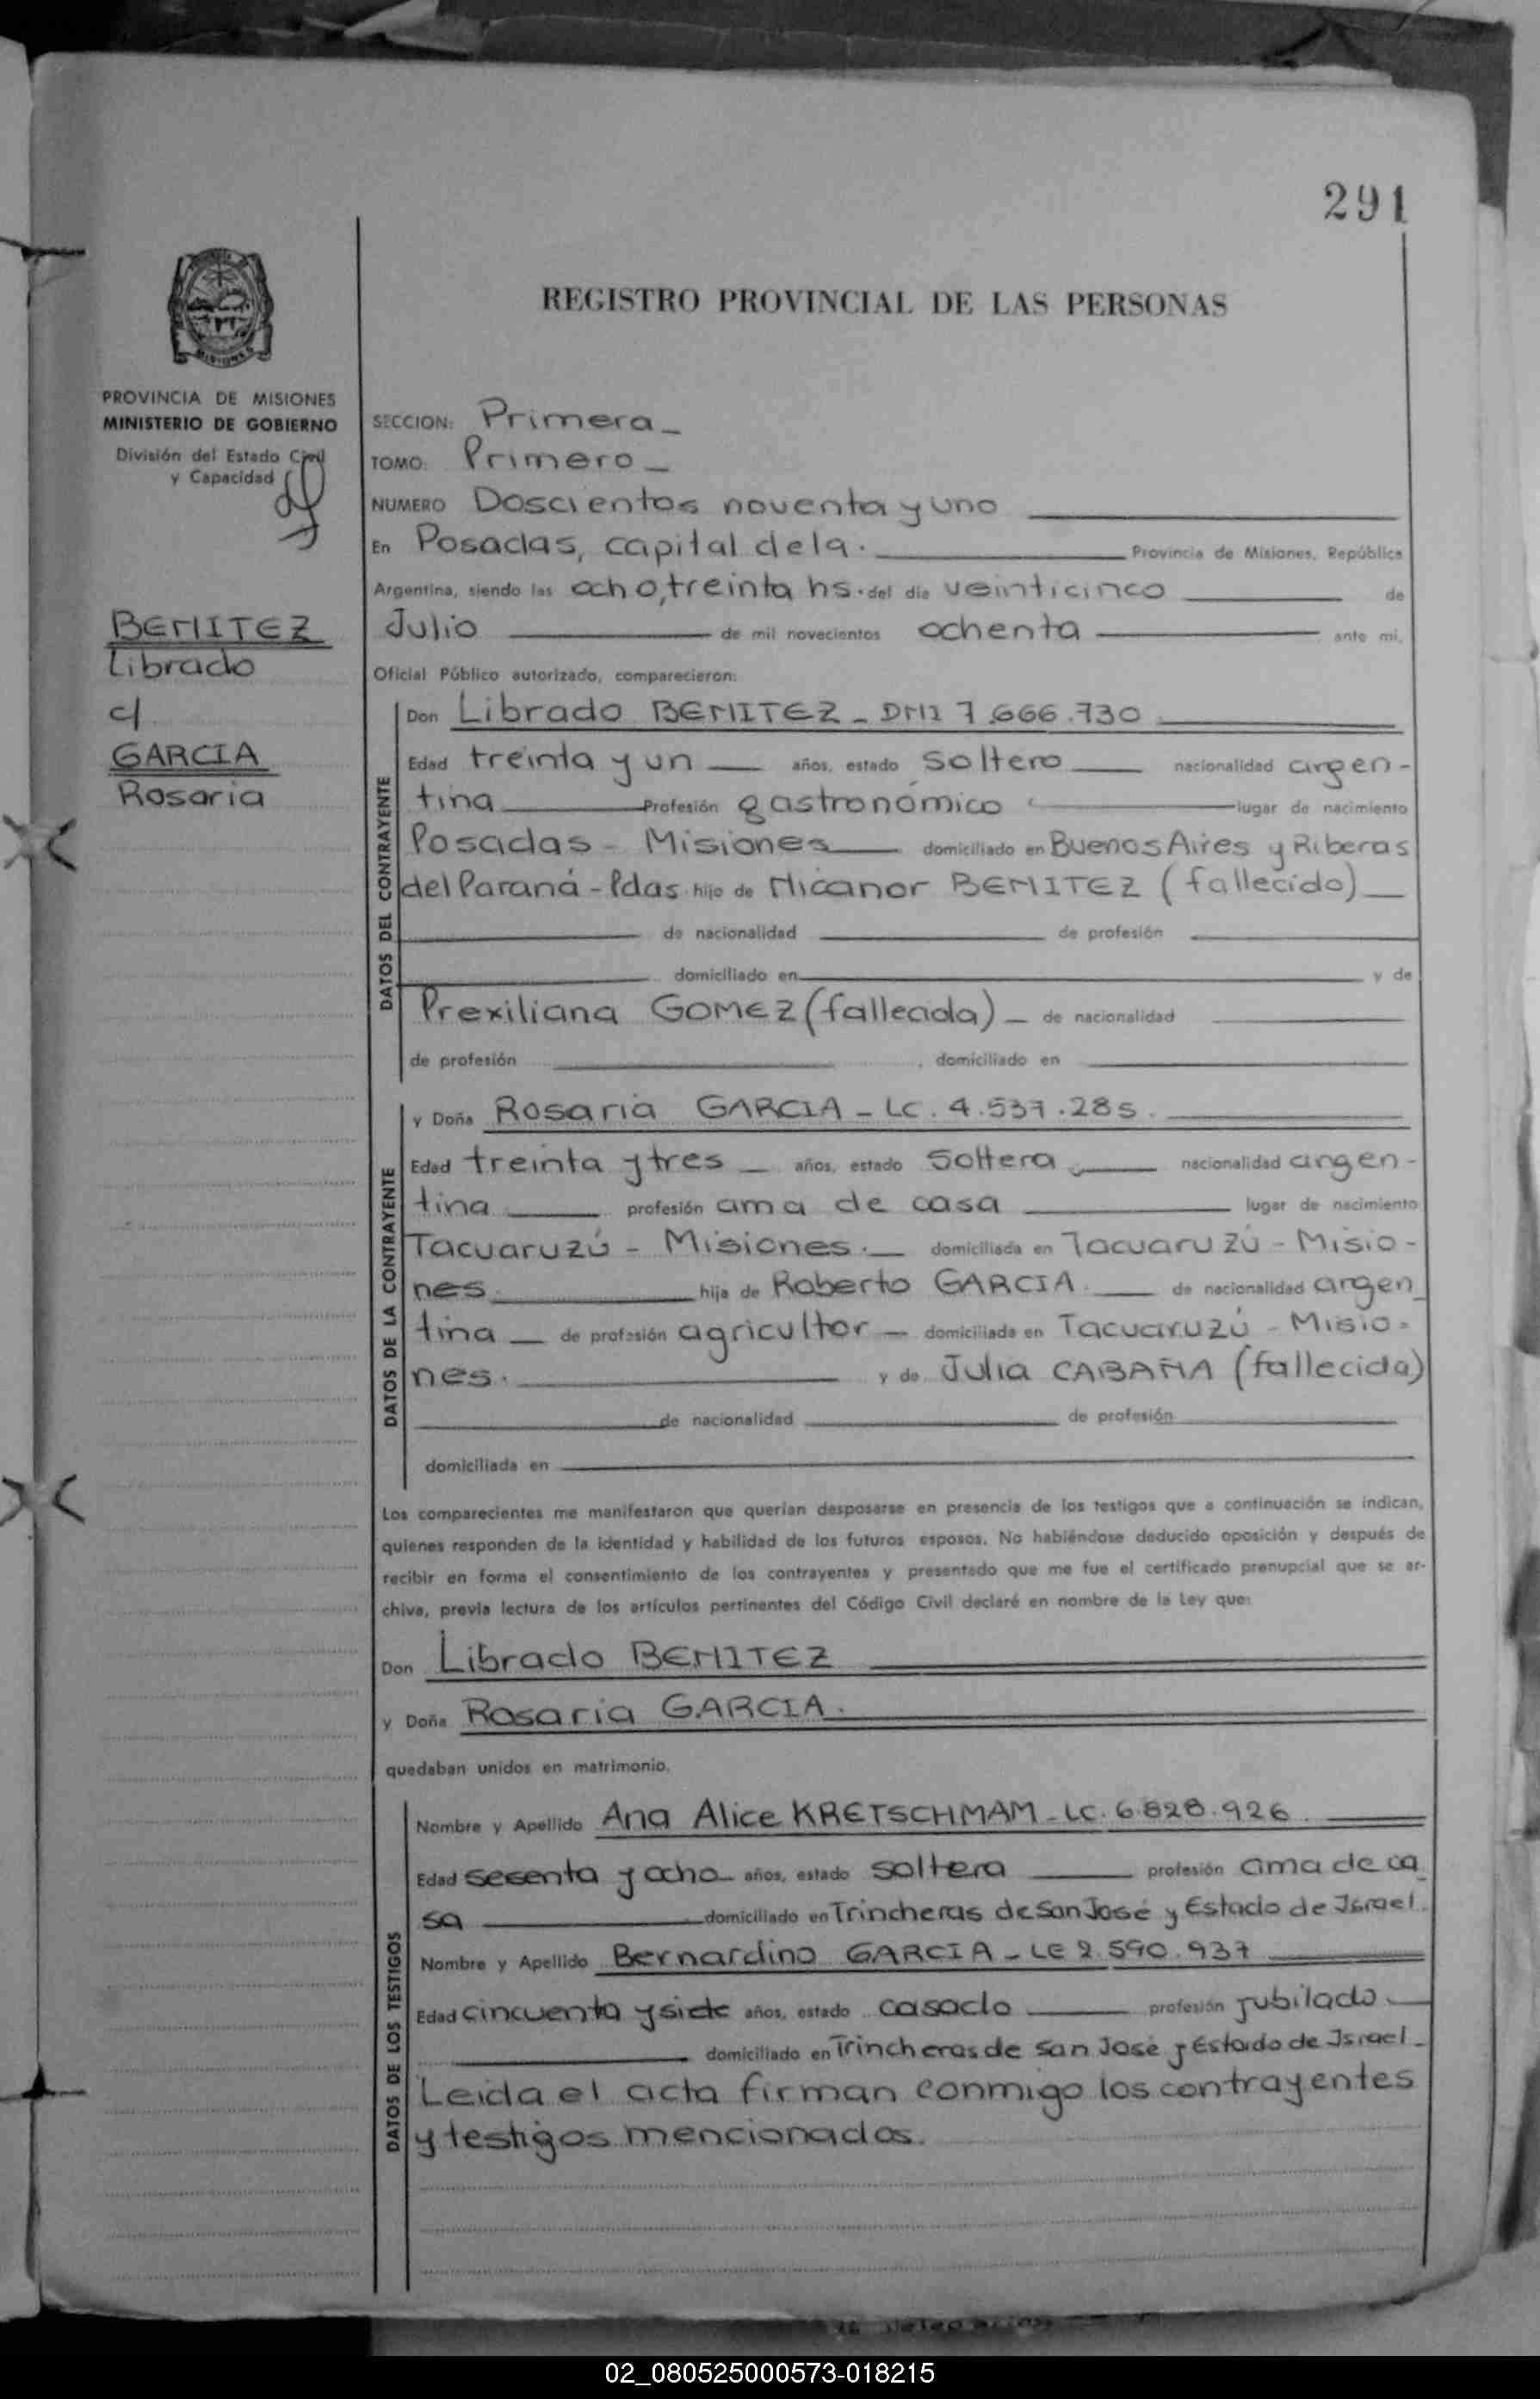 291
REGISTRO PROVINCIAL DE LAS PERSONAS
MISIONES
PROVINCIA DE MISIONES
MINISTERIO DE GOBIERNO
División del Estado Civil
y Capacidad
BENITEZ
Librado
c/
GARCIA
Rosaria
SECCION: Primera_
TOMO: Primero_
NUMERO Doscientos noventa y uno
En Posadas, capital de la. Provincia de Misiones, República
Argentina, siendo las ocho,treinta hs. del día veinticinco de
Julio de mil novecientos ochenta ante mi,
Oficial Público autorizado, comparecieron:
DATOS DEL CONTRAYENTE
Don Librado BENITEZ - DNI 7.666.730
Edad treinta y un años, estado soltero nacionalidad argen-
tina Profesión gastronómico lugar de nacimiento
Posadas - Misiones domiciliado en Buenos Aires y Riberas
del Paraná - Pdas. hijo de Nicanor BENITEZ (fallecido)
de nacionalidad de profesión
domiciliado en y de
Prexiliana GOMEZ (fallecida) _ de nacionalidad
de profesión , domiciliado en
DATOS DE LA CONTRAYENTE
y Doña Rosaria GARCIA - LC. 4.537.285.
Edad treinta y tres años, estado soltera nacionalidad argen-
tina profesión ama de casa lugar de nacimiento
Tacuaruzú - Misiones. domiciliada en Tacuaruzú - Misio-
nes. hija de Roberto GARCIA. de nacionalidad argen_
tina de profesión agricultor domiciliada en Tacuaruzú - Misio-
nes. y de Julia CABAÑA (fallecida)
de nacionalidad de profesión
domiciliada en
Los comparecientes me manifestaron que querían desposarse en presencia de los testigos que a continuación se indican,
quienes responden de la identidad y habilidad de los futuros esposos. No habiéndose deducido oposición y después de
recibir en forma el consentimiento de los contrayentes y presentado que me fue el certificado prenupcial que se ar-
chiva, previa lectura de los artículos pertinentes del Código Civil declaré en nombre de la Ley que:
Don Librado BENITEZ
y Doña Rosaria GARCIA.
quedaban unidos en matrimonio.
DATOS DE LOS TESTIGOS
Nombre y Apellido Ana Alice KRETSCHMAM - LC. 6.828.926
Edad sesenta y ocho años, estado soltera profesión ama de ca_
sa domiciliado en Trincheras de San José y Estado de Israel.
Nombre y Apellido Bernardino GARCIA - LE 2.590.937
Edad cincuenta y siete años, estado casado profesión jubilado.
domiciliado en Trincheras de San José y Estado de Israel_
Leida el acta firman conmigo los contrayentes
y testigos mencionados.
02_080525000573-018215